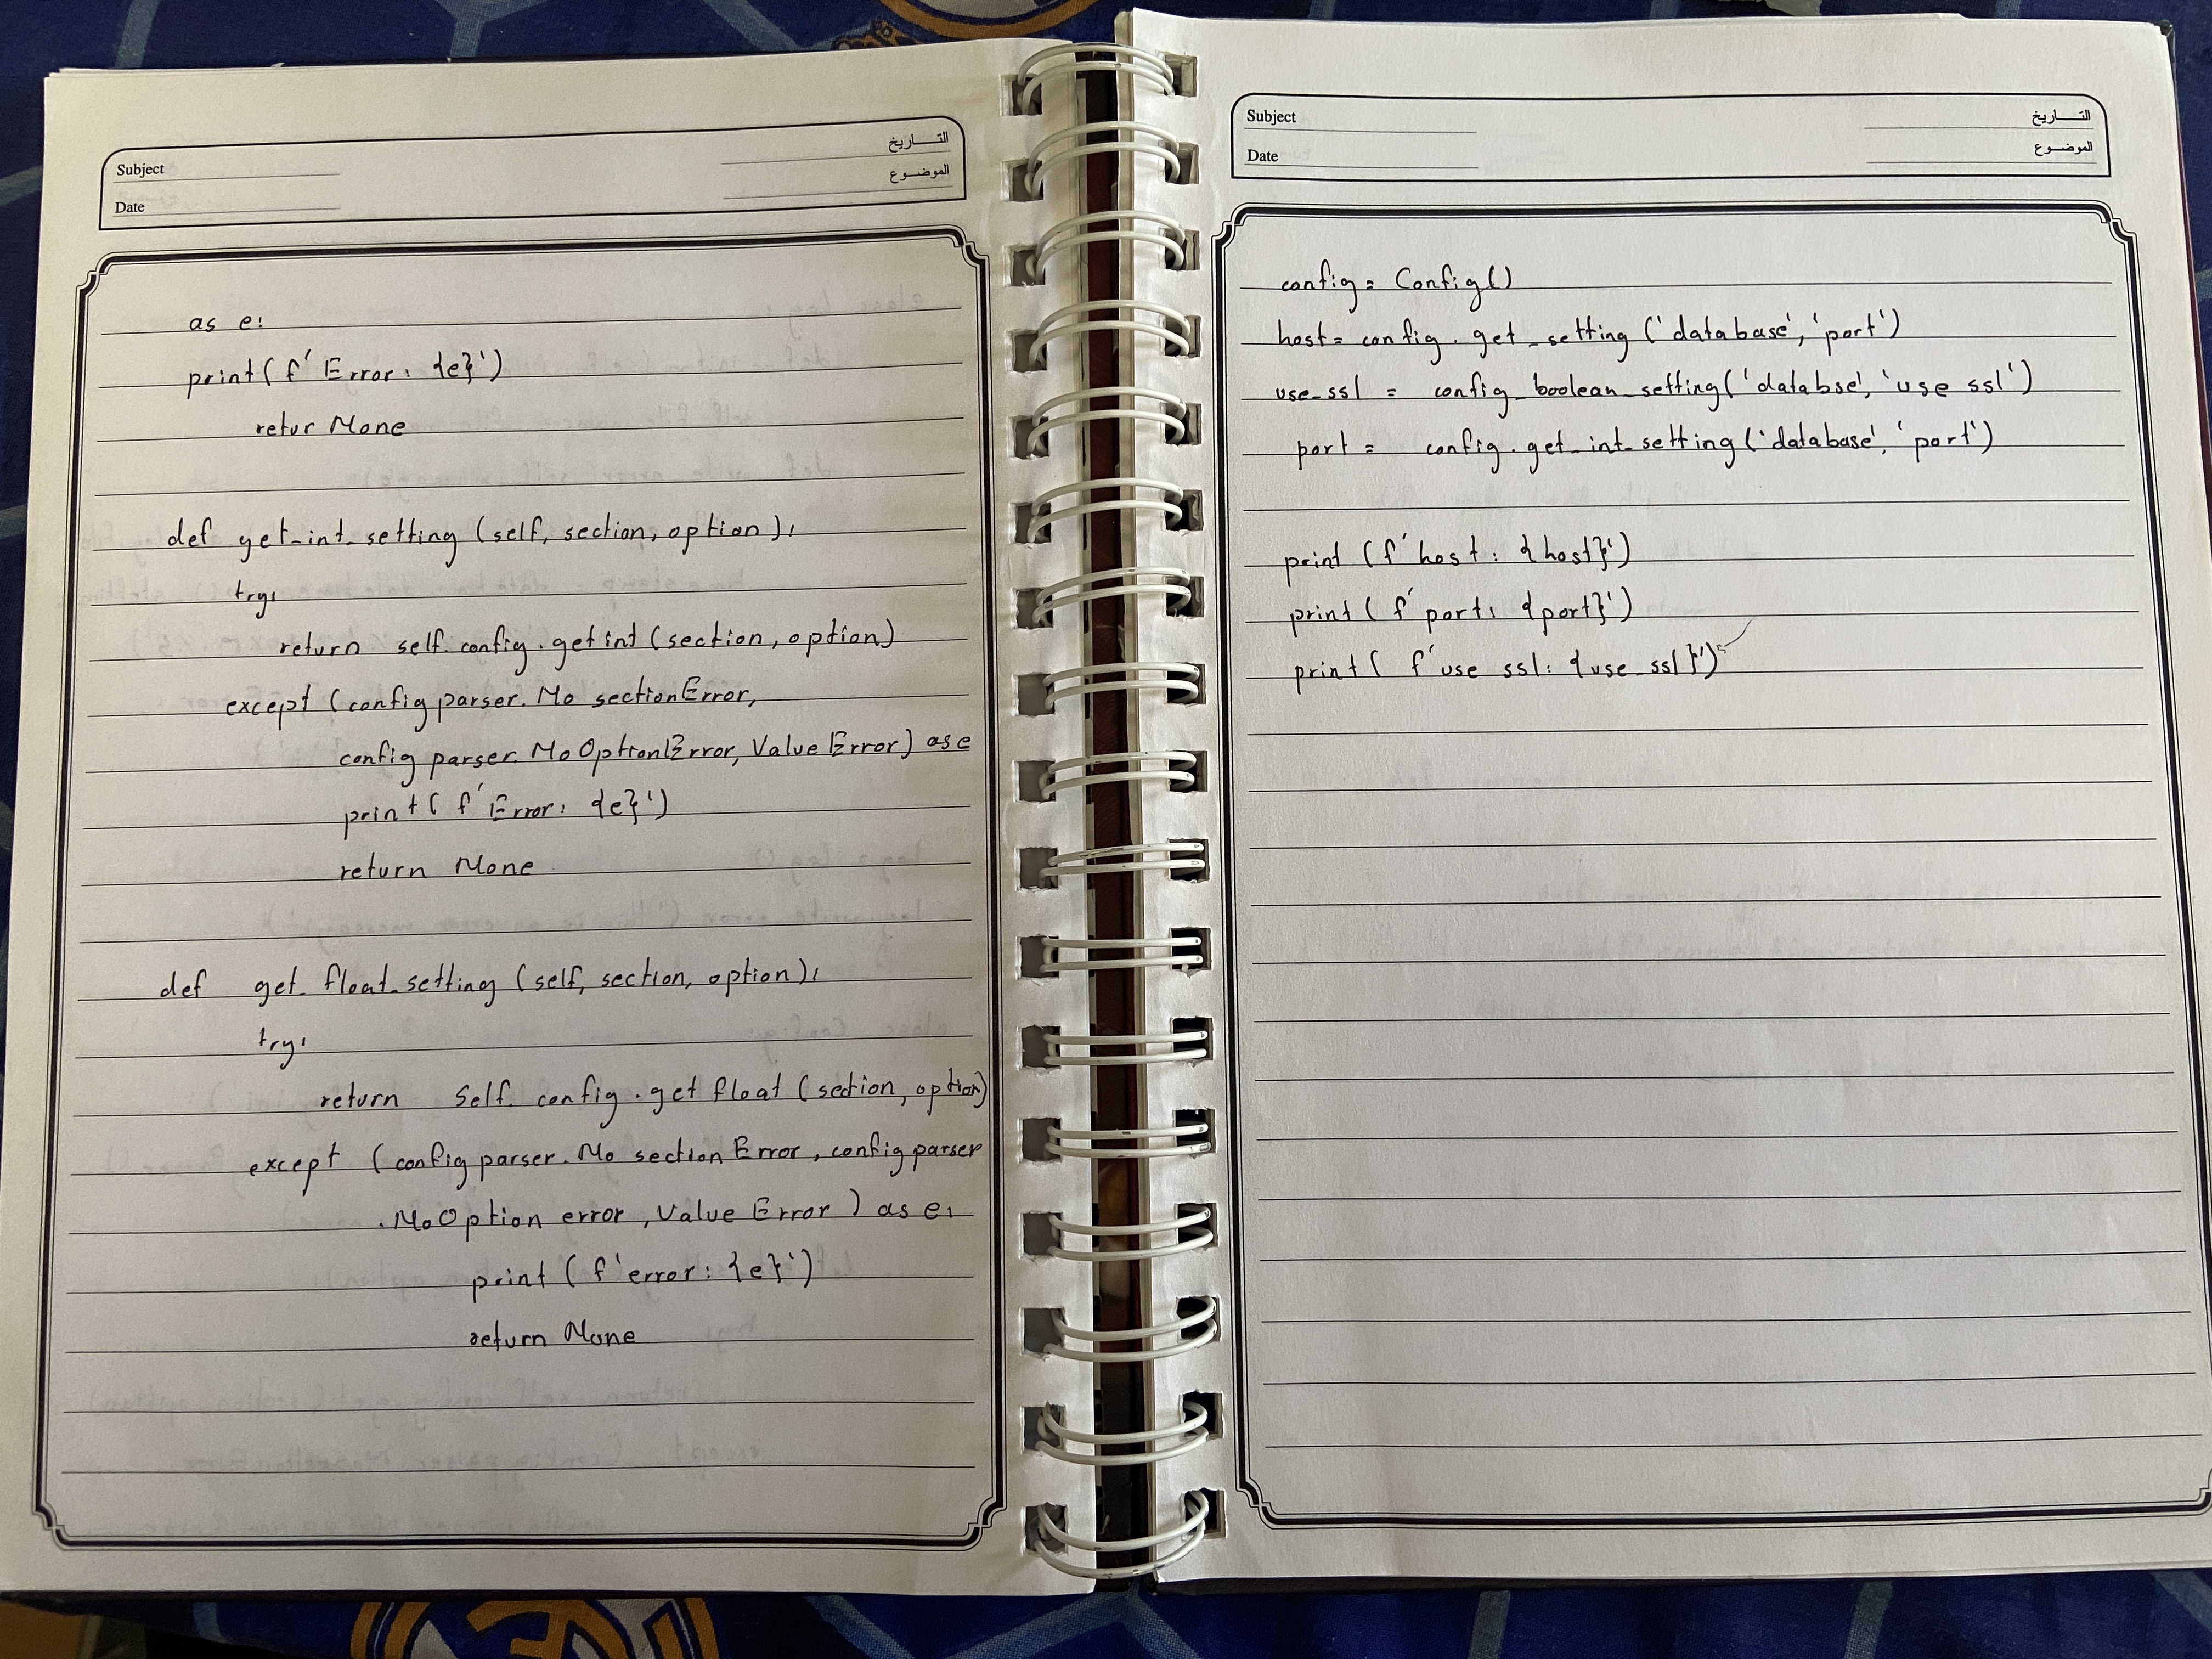 Subject
Date
التاريخ
الموضوع
as e:
print(f'Error: {e}')
retur None
def get_int_setting (self, section, option):
try:
return self.config.getint (section, option)
except (configparser.No sectionError,
configparser.NoOptionError, ValueError) as e
print( f'Error: {e}')
return None
def get_float_setting (self, section, option):
try:
return self.config.getfloat (section, option)
except (configparser.No sectionError, configparser
.NoOption error, Value Error) as e:
print( f'error: {e}')
return None
Subject
Date
التاريخ
الموضوع
config= Config()
host= config.get_setting ('database', 'port')
use_ssl = config_boolean_setting('databse', 'use ssl')
port = config.get_int_setting ('database', 'port')
print (f'host: {host}')
print( f'port: {port}')
print( f'use ssl: {use_ssl}')